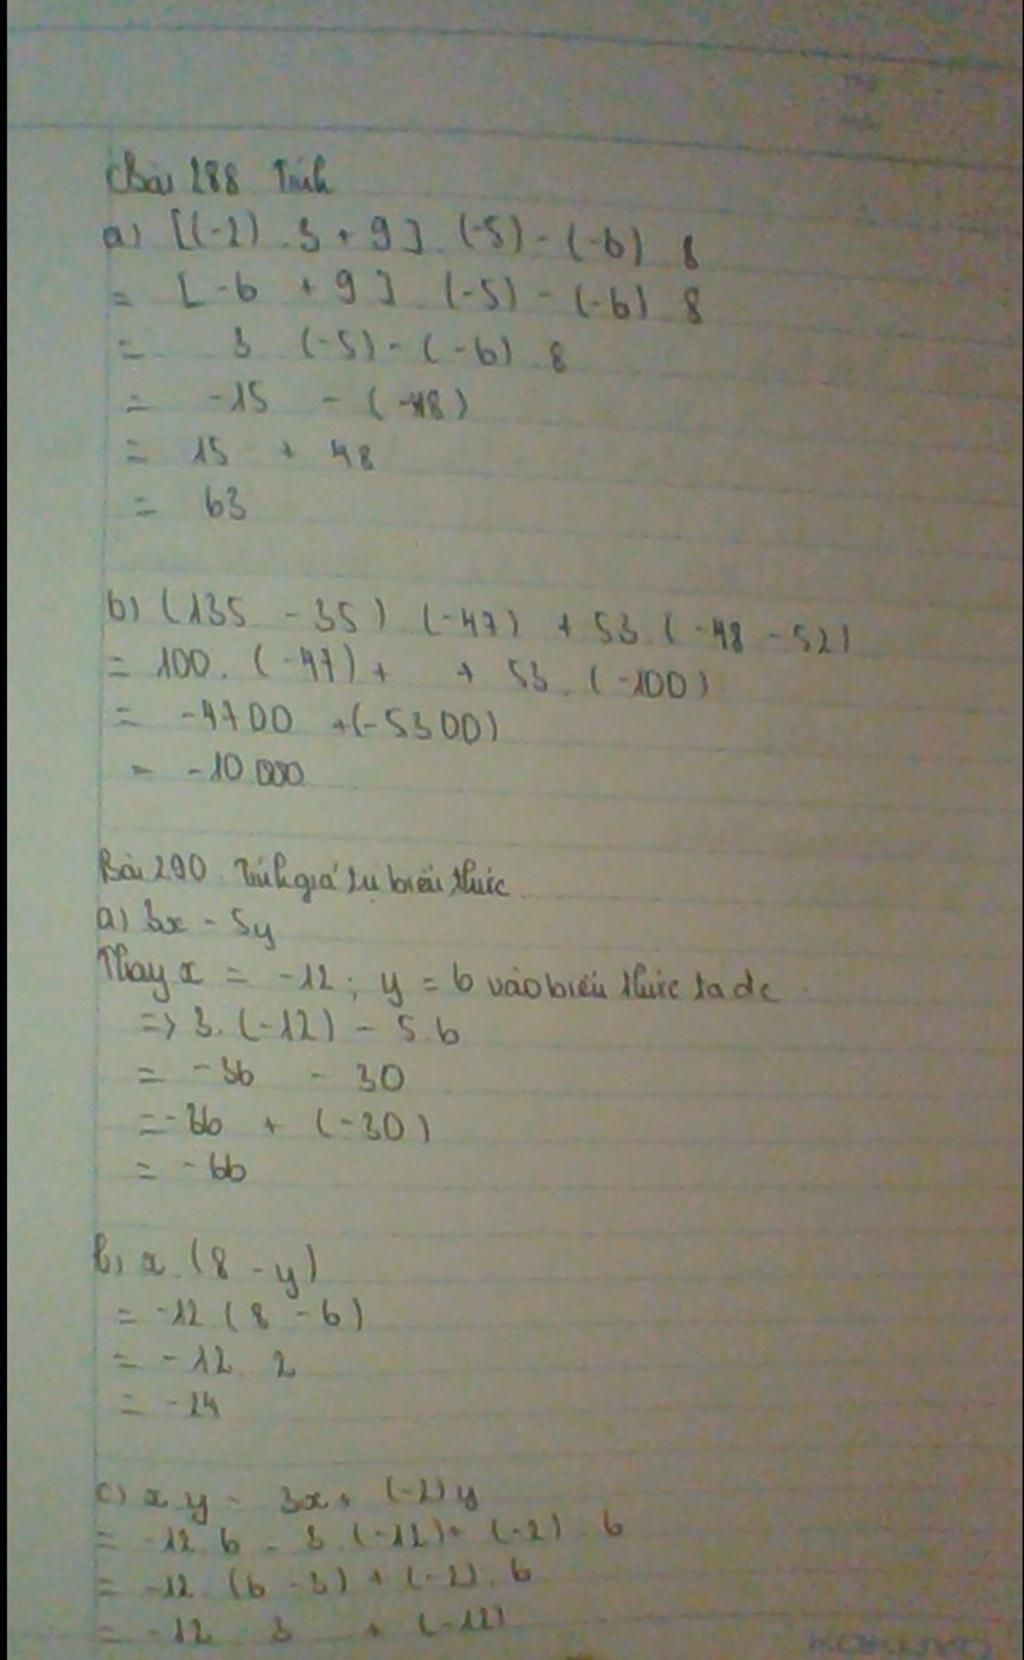 Bài 288 Tính
a) [(-2) . 3 + 9] . (-5) - (-6) 8
= [-6 + 9] (-5) - (-6) 8
= 3 (-5) - (-6) . 8
= -15 - (-48)
= 15 + 48
= 63
b) (135 - 35) (-47) + 53 . (-48 - 52)
= 100 . (-47) + + 53 . (-100)
= -4700 + (-5300)
= -10 000
Bài 290. Tính giá trị biểu thức
a) 3x - 5y
Thay x = -12 ; y = 6 vào biểu thức ta dc
=> 3. (-12) - 5.6
= -36 - 30
= -36 + (-30)
= -66
b, x . (8 - y)
= -12 (8 - 6)
= -12 . 2
= -24
c) x y - 3x + (-2) y
= -12 . 6 - 3 . (-12) + (-2) . 6
= -12 . (6 - 3) + (-2) . 6
= -12 3 + (-12)
KOKUYO